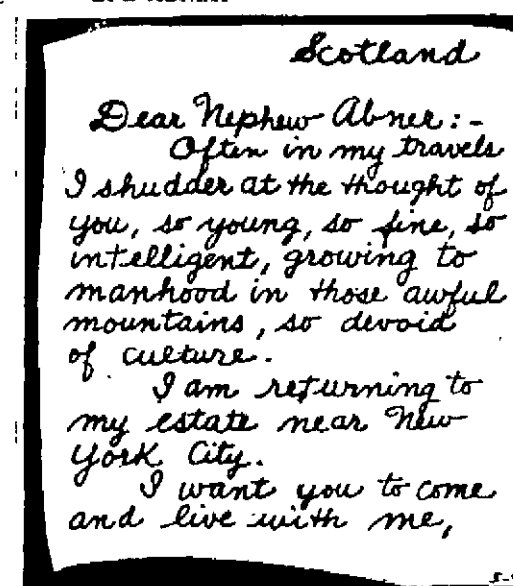 Scotland
Dear Nephew Abner:-
Often in my travels
I shudder at the thought of
you, so young, so fine, so
intelligent, growing to
manhood in those awful
mountains, so devoid
of culture.
I am returning to
my estate near New
York City.
I want you to come
and live with me,